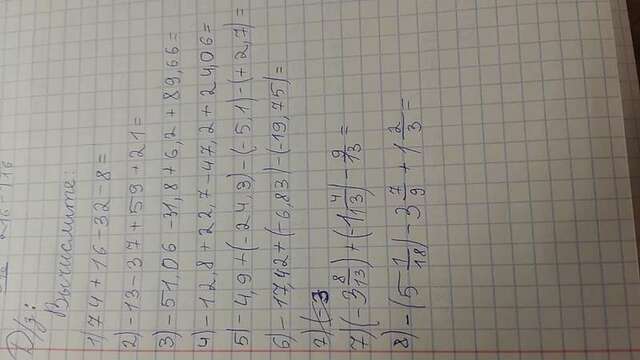 Д/з:
Вычислите:
1) 74+16-32-8=
2) -13-37+59+21=
3) -51,06-31,8+6,2+89,66=
4) -12,8+22,7-47,2+24,06=
5) -4,9+(-24,3)-(-5,1)-(+2,7)=
6) -17,42+(-6,83)-(-19,75)=
7) (-3 8/13)+(-1 4/13)-9/13=
8) -(5 1/18)-3 7/9+1 2/3=